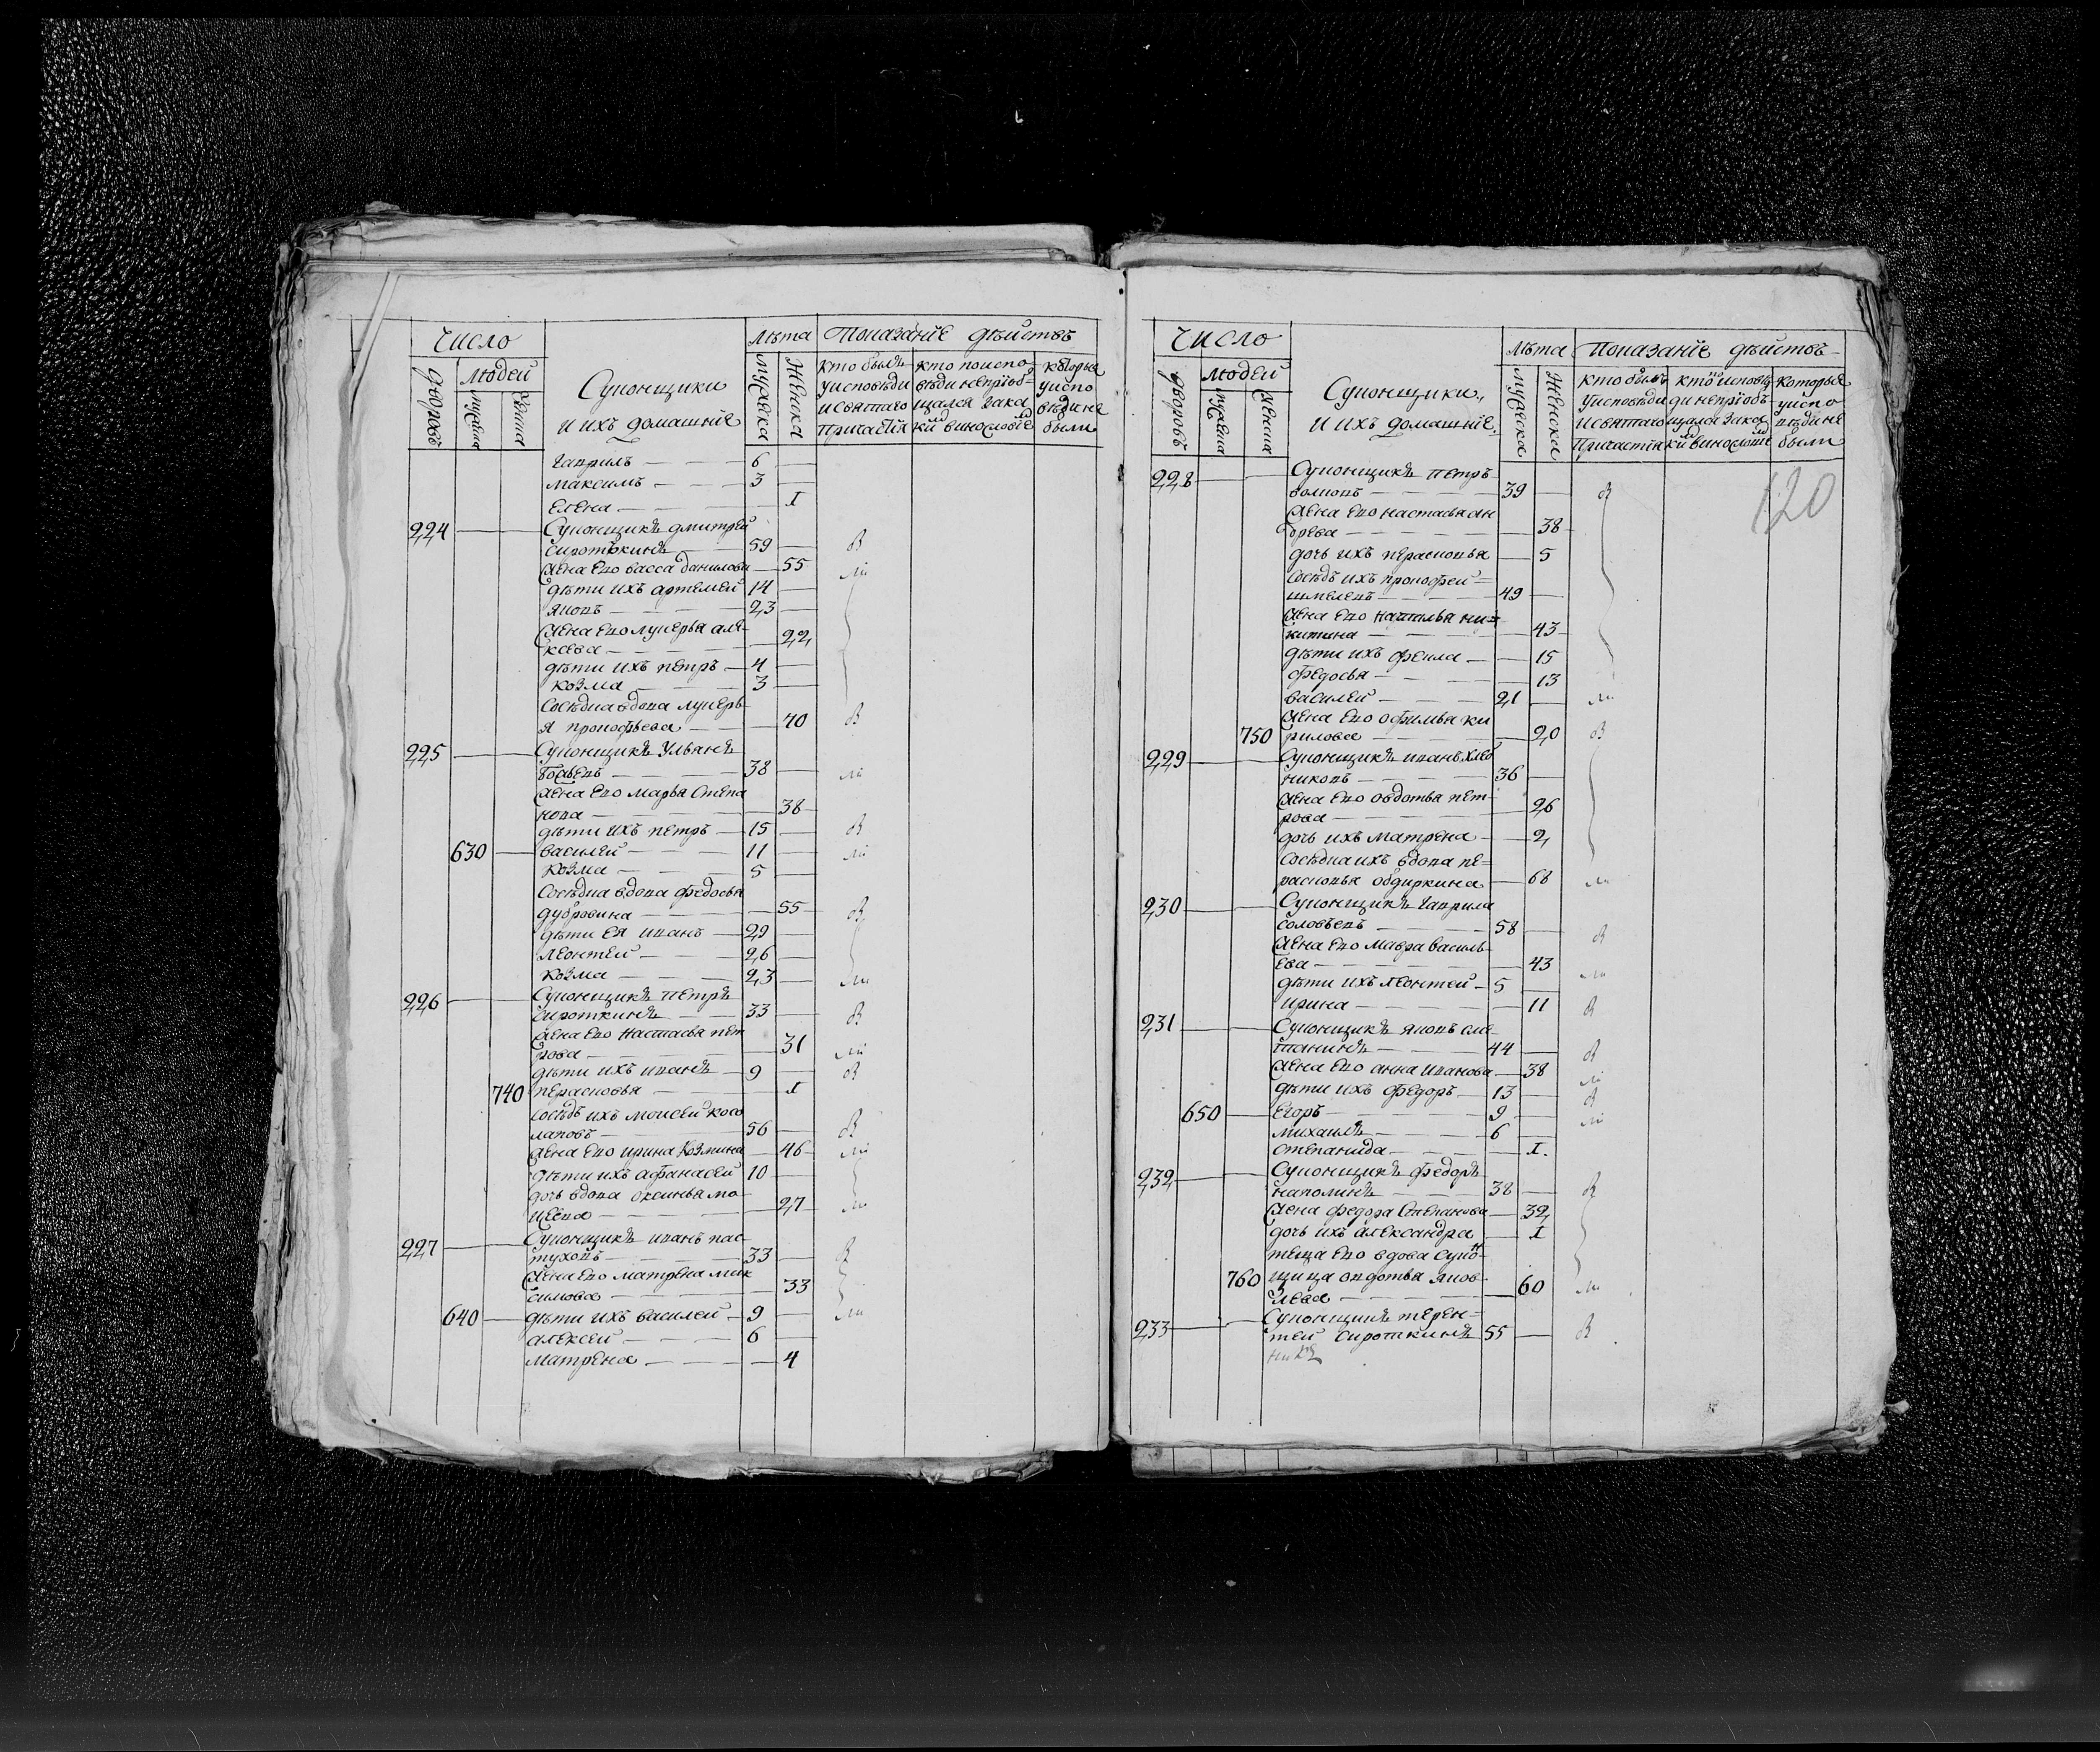 Число
Лѣта Показаніе дѣйствъ
дворовъ
Людей
мужска
женска
Суконщики
и ихъ домашніе
мужеска
Женска
кто были у исповѣди и святаго причастія
кто по исповѣди не пріобщался и за каки винословіе
которые у исповѣди не были
Гаврилъ — 6
максимъ — 3
елена — I
224 Суконщикъ дмитрей
сироткинъ — 59
жена ево васса данилова — 55
дѣти ихъ артемей 14
яковъ — 23
жена ево лукерья але-
ксеева — 22
дѣти ихъ петръ — 4
козма — 3
сосѣдка вдова лукерь-
я прокофьева — 40
225 Суконщикъ Ульянъ
— 38
жена ево марья степа
нова — 38
дѣти ихъ петръ — 15
630 василей — 11
козма — 5
сосѣдка вдова федосья
дубровина — 55
дѣти ея иванъ — 29
леонтей — 26
козма — 23
226 Суконщикъ петръ
сироткинъ — 33
жена ево настасья пет
рова — 31
дѣти ихъ иванъ — 9
740 перасковья — I
сосѣдъ ихъ моисей косо
лаповъ — 56
жена ево ирина козмина — 46
дѣти ихъ афанасей 10
дочь вдова оксинья мо-
исева — 27
227 Суконщикъ иванъ пас-
туховъ — 33
жена ево матрена мак
симова — 33
640 дѣти ихъ василей — 9
алексей — 6
матрена — 4
Число
Лѣта Показаніе дѣйствъ
дворовъ
людей
мужска
женска
Суконщики
и ихъ домашніе
мужеска
Женска
кто былъ у исповѣди и святаго причастія
кто по исповѣди не пріобщался за каки винословіе
которые у исповѣди не были
120
228 Суконщикъ петръ
— 39
жена ево настасья ан
дреева — 38
дочь ихъ перасковья — 5
сосѣдъ ихъ прокофей
шмелевъ — 49
жена ево наталья ни-
китина — 43
дѣти ихъ фекла — 15
федосья — 13
василей — 21
жена ево офимья ки
750 рилова — 20
229 Суконщикъ иванъ хлеб
никовъ — 36
жена ево овдотья пет-
рова — 26
дочь ихъ матрена — 2
сосѣдка ихъ вдова пе-
расковья обдиркина — 68
230 Суконщикъ гаврила
соловьевъ — 58
жена ево мавра василь-
ева — 43
дѣти ихъ леонтей — 5
ирина — 11
231 Суконщикъ яковъ сла-
танинъ — 44
жена ево анна иванова — 38
дѣти ихъ федоръ — 13
650 егоръ — 9
михаилъ — 6
степанида — I.
232 Суконщикъ федоръ
наполинъ — 38
жена федора степанова — 32
дочь ихъ александра — I
теща ево вдова сукон-
760 щица овдотья яков-
лева — 60
233 Суконщикъ терен-
тей сироткинъ 55